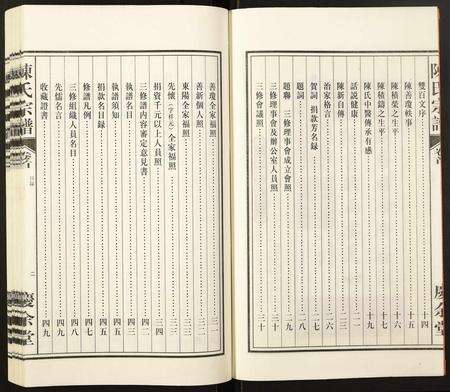 陳氏宗譜
慶余堂
雙百文序 十四
陳善瓊軼事 十五
陳楨榮之生平 十六
陳楨鑄之生平 十七
陳氏中醫傳承有感 十九
話説健康 二一
陳新自傳 二三
治家格言 二五
賀詞 捐款芳名錄 二七
題詞 二八
題聯 三修理事會成立會照 二九
三修理事會及辦公室人員照 三十
三修會議照 三十
善瓊全家福照 三一
善新個人照 三二
東陽全家福照 三三
先懷 全家福照 三三
捐資千元以上人員照 三四
三修譜内容審定意見書 四二
執譜名目 四三
執譜須知 四五
捐款名目錄 四五
修譜凡例 四七
三修組織人員名目 四八
先儒名言 四九
收藏證書 四九
陳氏宗譜
目錄
二
慶余堂